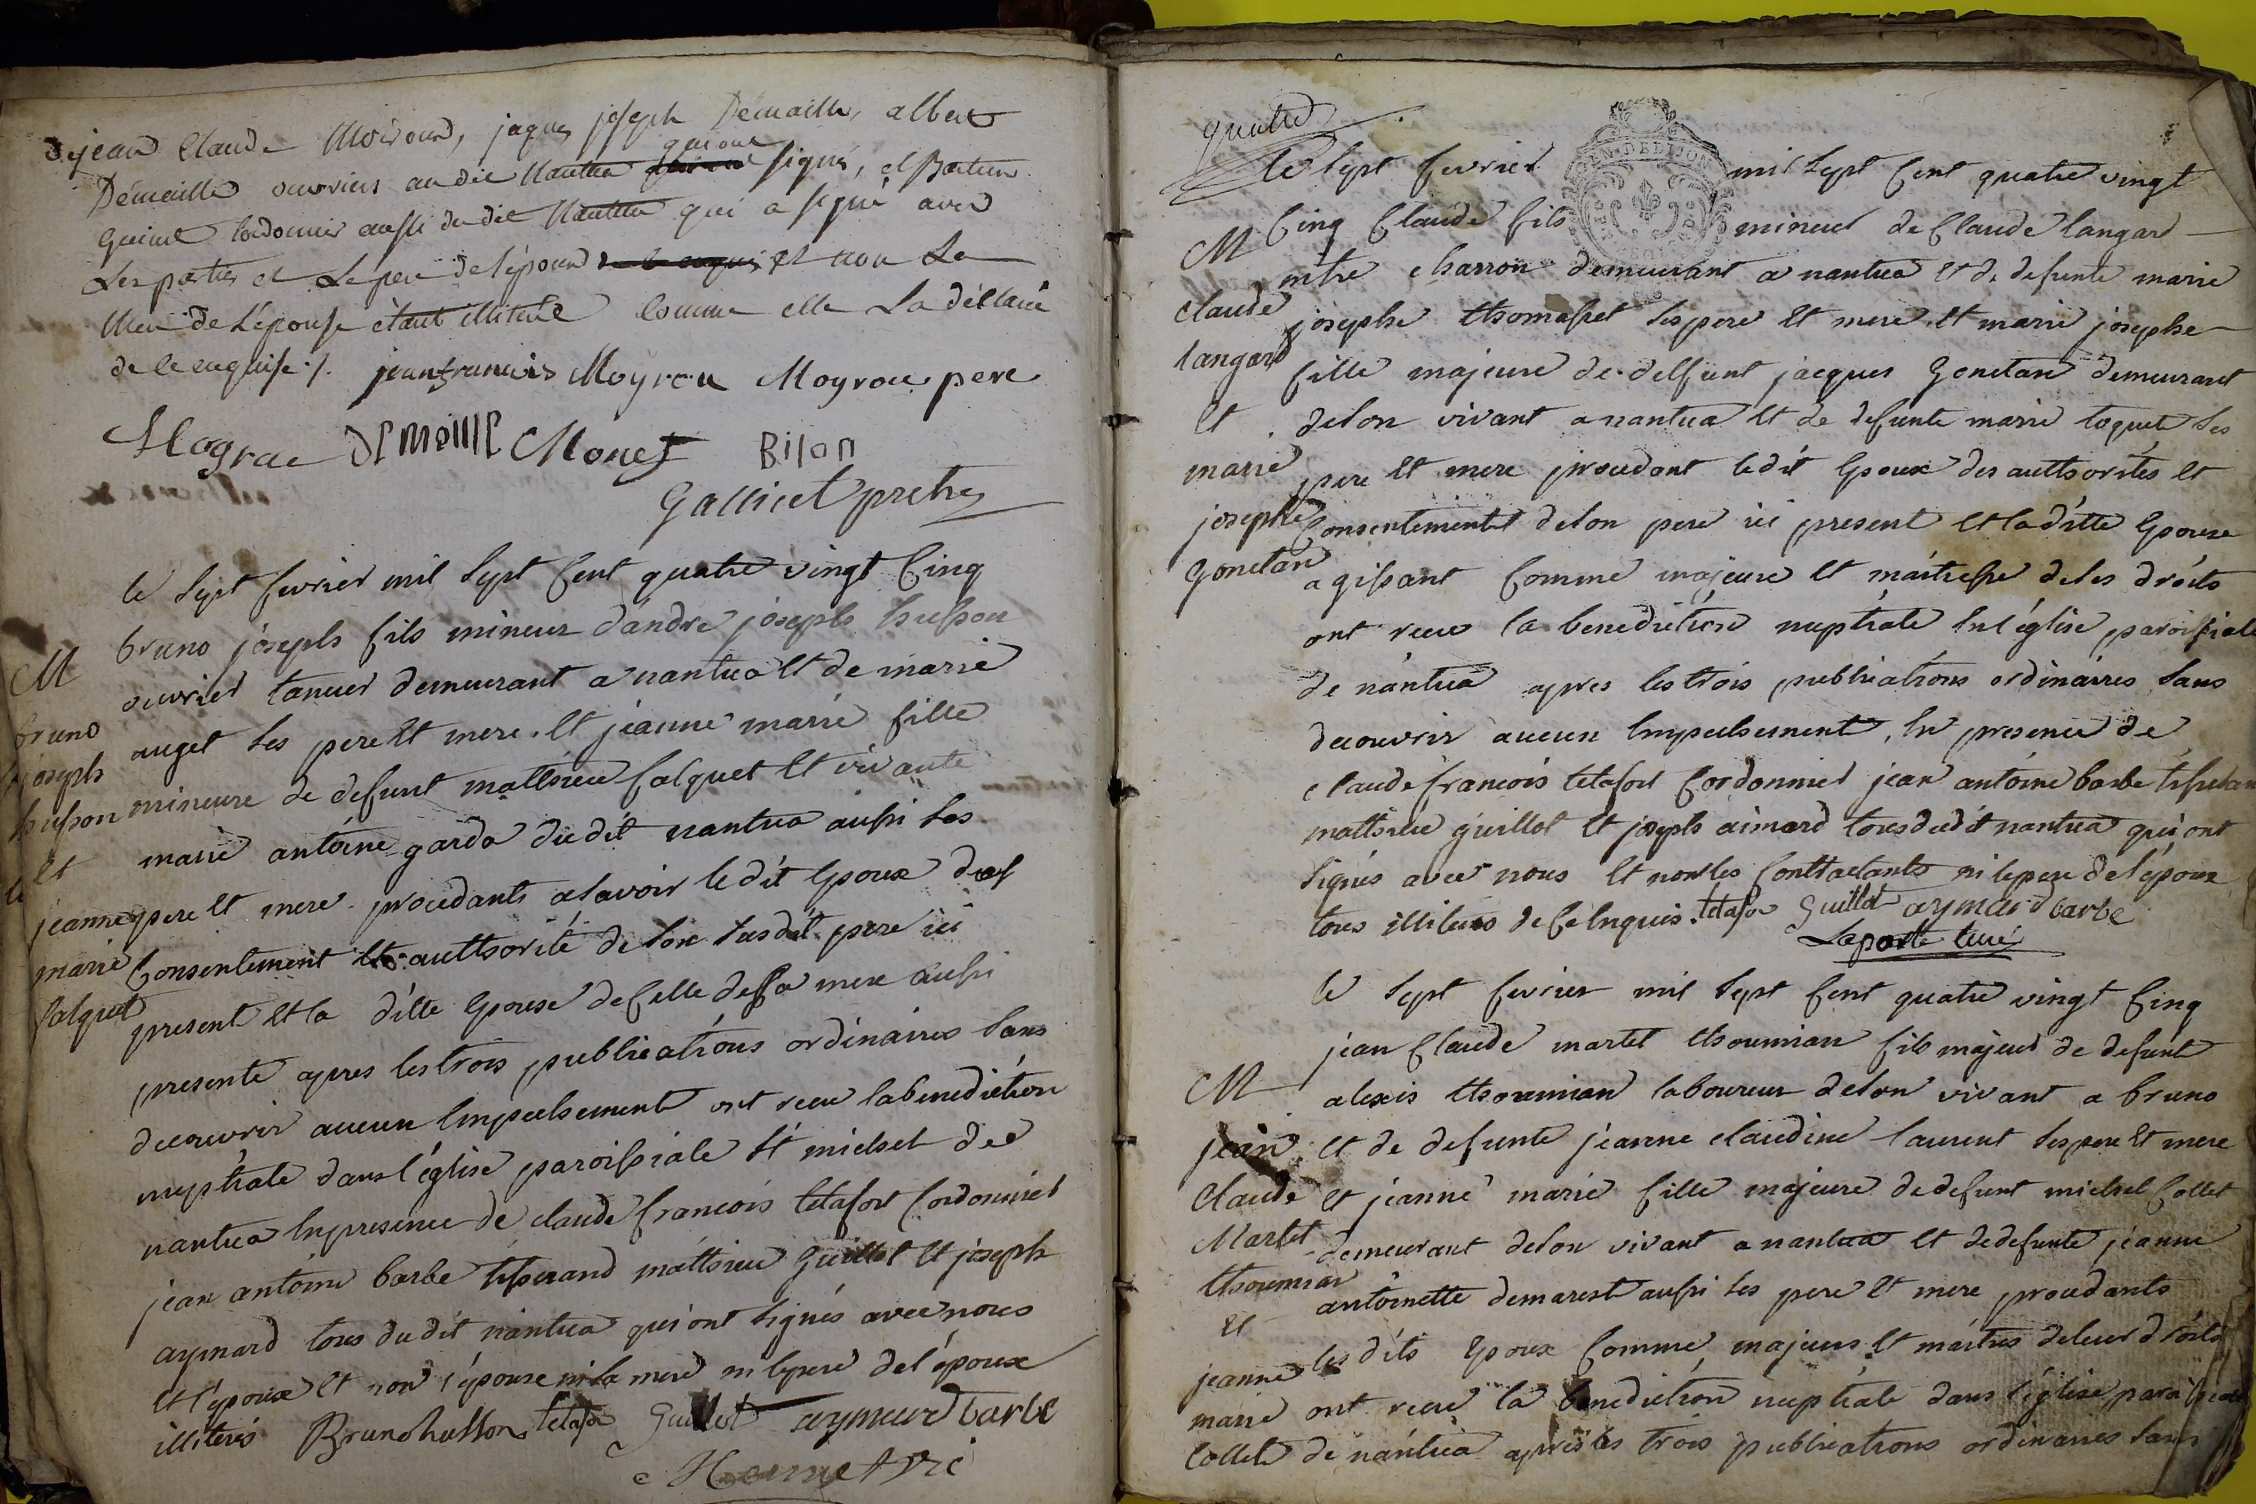 de jean Claude Moiroud, jaques joseph Demaille, albert
Demaille ouvriers au dit Nantua qui ont signé, et
quinet Cordonnier aussi du dit Nantua qui a signé avec
Les parties et Le pere de l'époux et non La
Mere de l'épouse étant illiterée Comme elle La déclaré
de ce enquise ./. jean francois Moyrou Moyrou pere
Mograe Demaille Monet Bilon
Gallicet pretre
le sept fevrier mil sept Cent quatre vingt Cinq
bruno joseph fils mineur d'andre joseph husson
ouvrier tanneur demeurant a nantua Et de marie
auget ses pere Et mere. Et jeanne marie fille
mineure de defunt matthieu falquet Et vivante
marie antoine garda du dit nantua aussi ses
pere Et mere. procedants a savoir le dit Epoux du
Consentement Et authorité de son susdit pere ici
present Et la ditte Epouse de Celle de sa mere aussi
presente apres les trois publications ordinaires sans
decouvrir aucun Empechement ont recu la benediction
nuptiale dans l'église paroissiale st michel de
nantua En presence de claude francois letafort Cordonnier
jean antoine barbe tisserand matthieu Guillot Et joseph
aymard tous du dit nantua qui ont signés avec nous
Et l'époux Et non l'épouse ni la mere ni le pere de l'époux
illiterés Bruno husson letafor Guillot aymard barbe
M
bruno
joseph
husson
Et
jeanne
marie
falquet
quatre
le sept fevrier mil sept Cent quatre vingt
Cinq Claude fils mineur de Claude langard
mtre charron demeurant a nantua Et de defunte marie
josephe thomasset ses pere Et mere, Et marie josephe
fille majeure de deffunt jacques Gonetan demeurant
de son vivant a nantua Et de defunte marie toquet ses
pere Et mere procedant le dit Epoux des authorités Et
Consentement de son pere ici present Et la ditte Epouse
agissant Comme majeure Et maitresse de ses droits
ont recu la benediction nuptiale En l'église paroissiale
de nantua apres les trois publications ordinaires sans
decouvrir aucun Empechement, En presence de
claude francois letafort Cordonnier jean antoine barbe
matthieu guillot Et joseph aimard tous du dit nantua qui ont
signés avec nous Et non les Contractants ni le pere de l'époux
tous illiterés de Ce Enquis. letafor Guillot aymard barbe
Laporte Curé
M
claude
langard
Et
marie
josephe
Gonetan
le sept fevrier mil sept Cent quatre vingt Cinq
jean Claude martel thoumian fils majeur de defunt
alexis thoumian laboureur de son vivant a bruno
Et de defunte jeanne claudine laurent ses pere Et mere
Et jeanne marie fille majeure de defunt michel Collet
demeurant de son vivant a nantua Et de defunte jeanne
antoinette demarest aussi ses pere Et mere procedants
les dits Epoux Comme majeurs Et maitres de leur droits
ont recu la benediction nuptiale dans l'église paroissiale
de nantua apres les trois publications ordinaires sans
M
jean
Claude
Martel
thoumian
Et
jeanne
marie
Collet